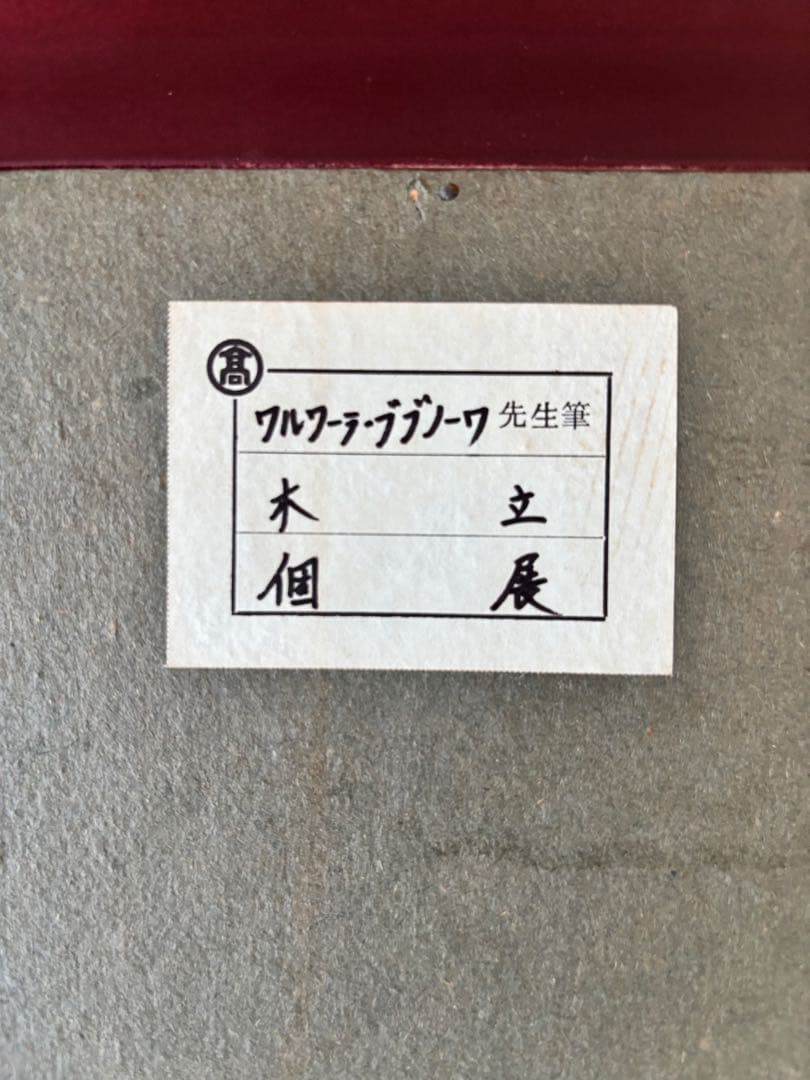 髙
ワルワーラ・ブブノーワ 先生筆
木立
個展